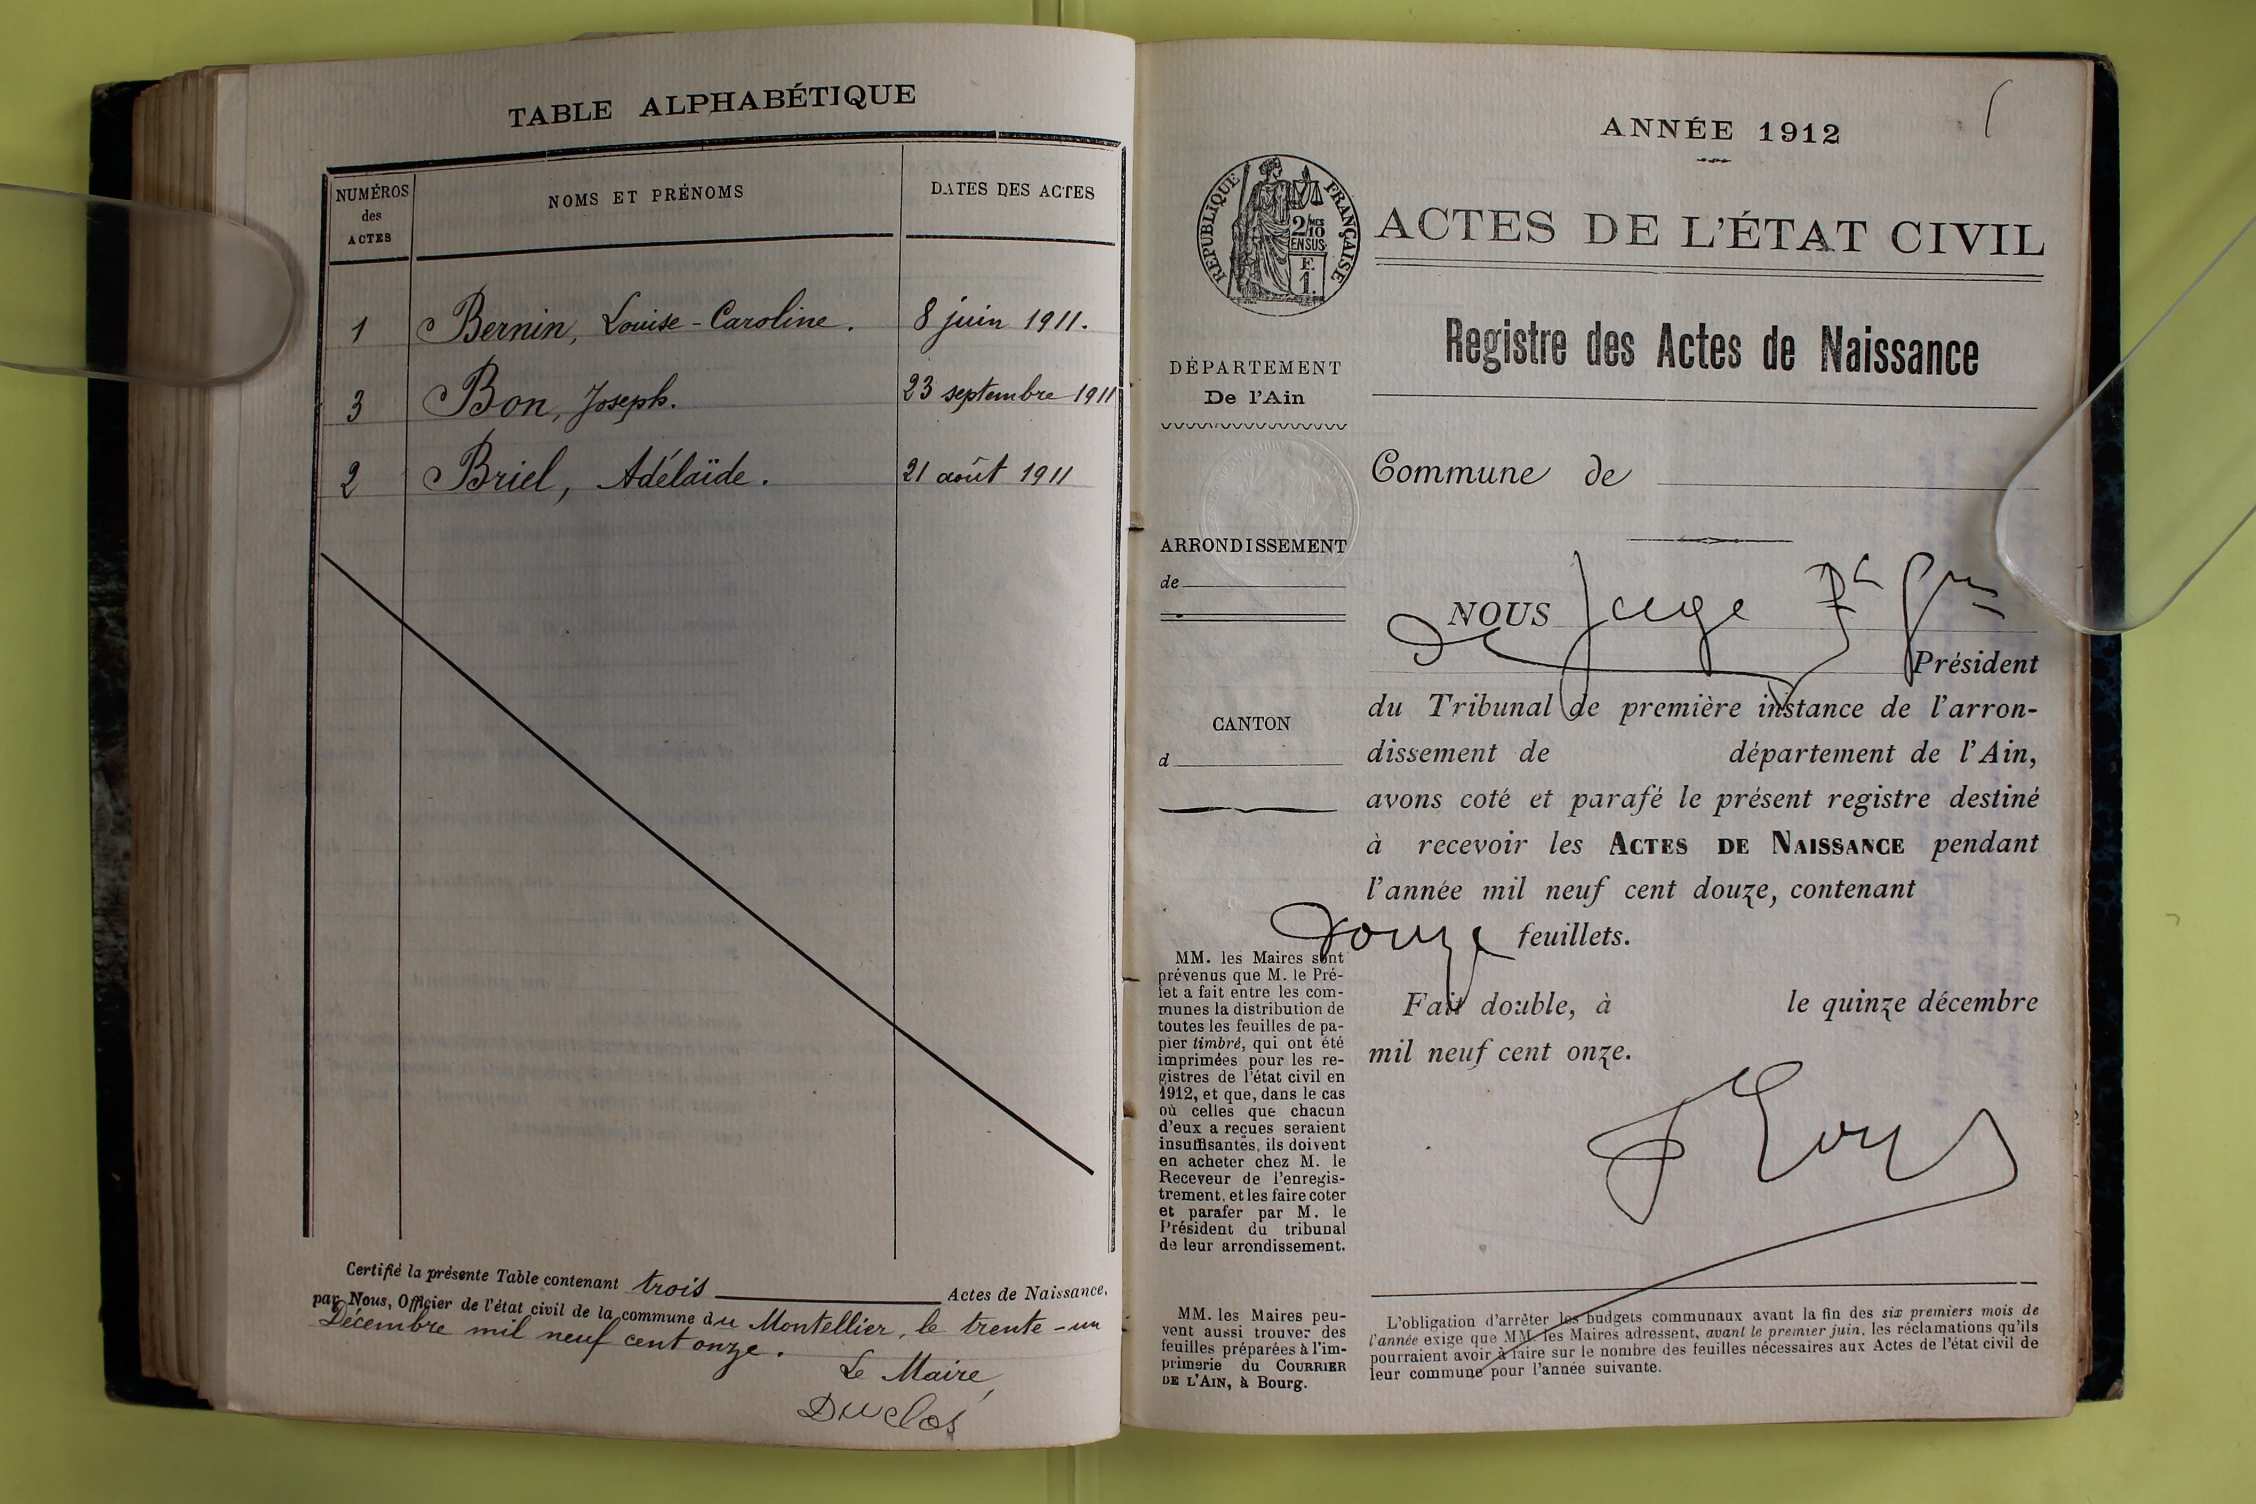 TABLE ALPHABÉTIQUE
NUMÉROS
des
ACTES
NOMS ET PRÉNOMS
DATES DES ACTES
1 Bernin, Louise-Caroline. 8 juin 1911.
3 Bon, Joseph. 23 septembre 1911
2 Briel, Adélaïde. 21 août 1911
Certifié la présente Table contenant trois Actes de Naissance,
par Nous, Officier de l'état civil de la commune du Montellier, le trente-un
Décembre mil neuf cent onze.
Le Maire,
Duclos
ANNÉE 1912
RÉPUBLIQUE FRANÇAISE
2/10MES
EN SUS
F.
1.
ACTES DE L'ÉTAT CIVIL
Registre des Actes de Naissance
DÉPARTEMENT
De l'Ain
Commune de
ARRONDISSEMENT
de
NOUS Juge
Président
du Tribunal de première instance de l'arron-
CANTON
d
dissement de département de l'Ain,
avons coté et parafé le présent registre destiné
à recevoir les ACTES DE NAISSANCE pendant
l'année mil neuf cent douze, contenant
douze feuillets.
Fait double, à le quinze décembre
mil neuf cent onze.
MM. les Maires sont
prévenus que M. le Pré-
fet a fait entre les com-
munes la distribution de
toutes les feuilles de pa-
pier timbré, qui ont été
imprimées pour les re-
gistres de l'état civil en
1912, et que, dans le cas
où celles que chacun
d'eux a reçues seraient
insuffisantes, ils doivent
en acheter chez M. le
Receveur de l'enregis-
trement, et les faire coter
et parafer par M. le
Président du tribunal
de leur arrondissement.
MM. les Maires peu-
vent aussi trouver des
feuilles préparées à l'im-
primerie du COURRIER
DE L'AIN, à Bourg.
L'obligation d'arrêter les budgets communaux avant la fin des six premiers mois de
l'année exige que MM. les Maires adressent, avant le premier juin, les réclamations qu'ils
pourraient avoir à faire sur le nombre des feuilles nécessaires aux Actes de l'état civil de
leur commune pour l'année suivante.